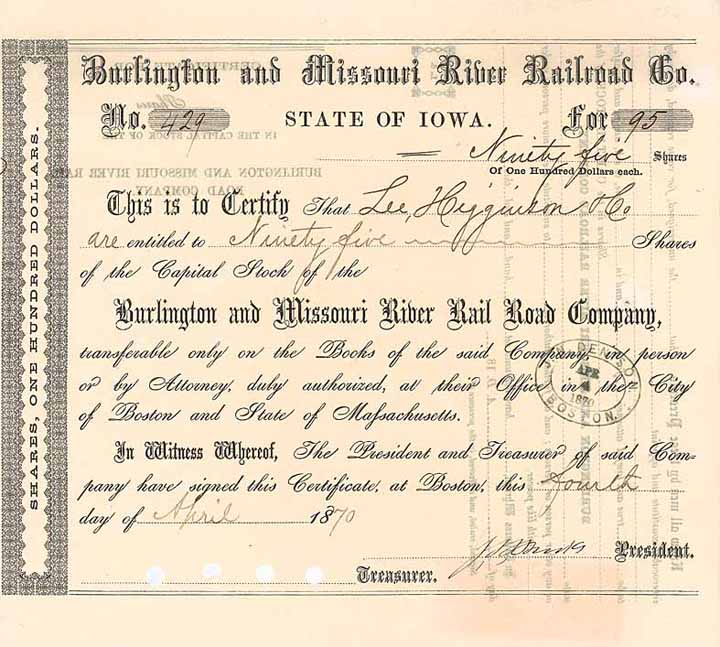 Burlington and Missouri River Railroad Co.
No. 429 STATE OF IOWA. For 95
Ninety five Shares
Of One Hundred Dollars each.
This is to Certify That Lee, Higginson & Co
are entitled to Ninety five Shares
of the Capital Stock of the
Burlington and Missouri River Rail Road Company,
transferable only on the Books of the said Company, in person
or by Attorney, duly authorized, at their Office in the City
of Boston and State of Massachusetts.
In Witness Whereof, The President and Treasurer of said Com-
pany have signed this Certificate, at Boston, this fourth
day of April 1870
President.
Treasurer.
SHARES, ONE HUNDRED DOLLARS.
DENISON
APR
4
1870
BOSTON.
CERTIFICATE FOR
Shares
IN THE CAPITAL STOCK OF THE
BURLINGTON AND MISSOURI RIVER RAIL
ROAD COMPANY.